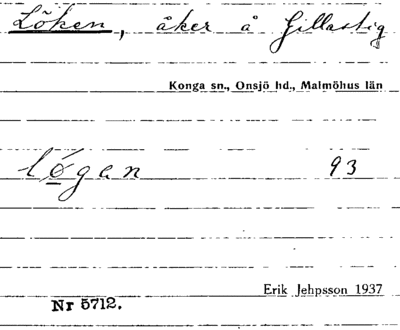 Löken, åker å Gillastig
Konga sn., Onsjö hd., Malmöhus län
lógan 93
Erik Jehpsson 1937
Nr 5712.